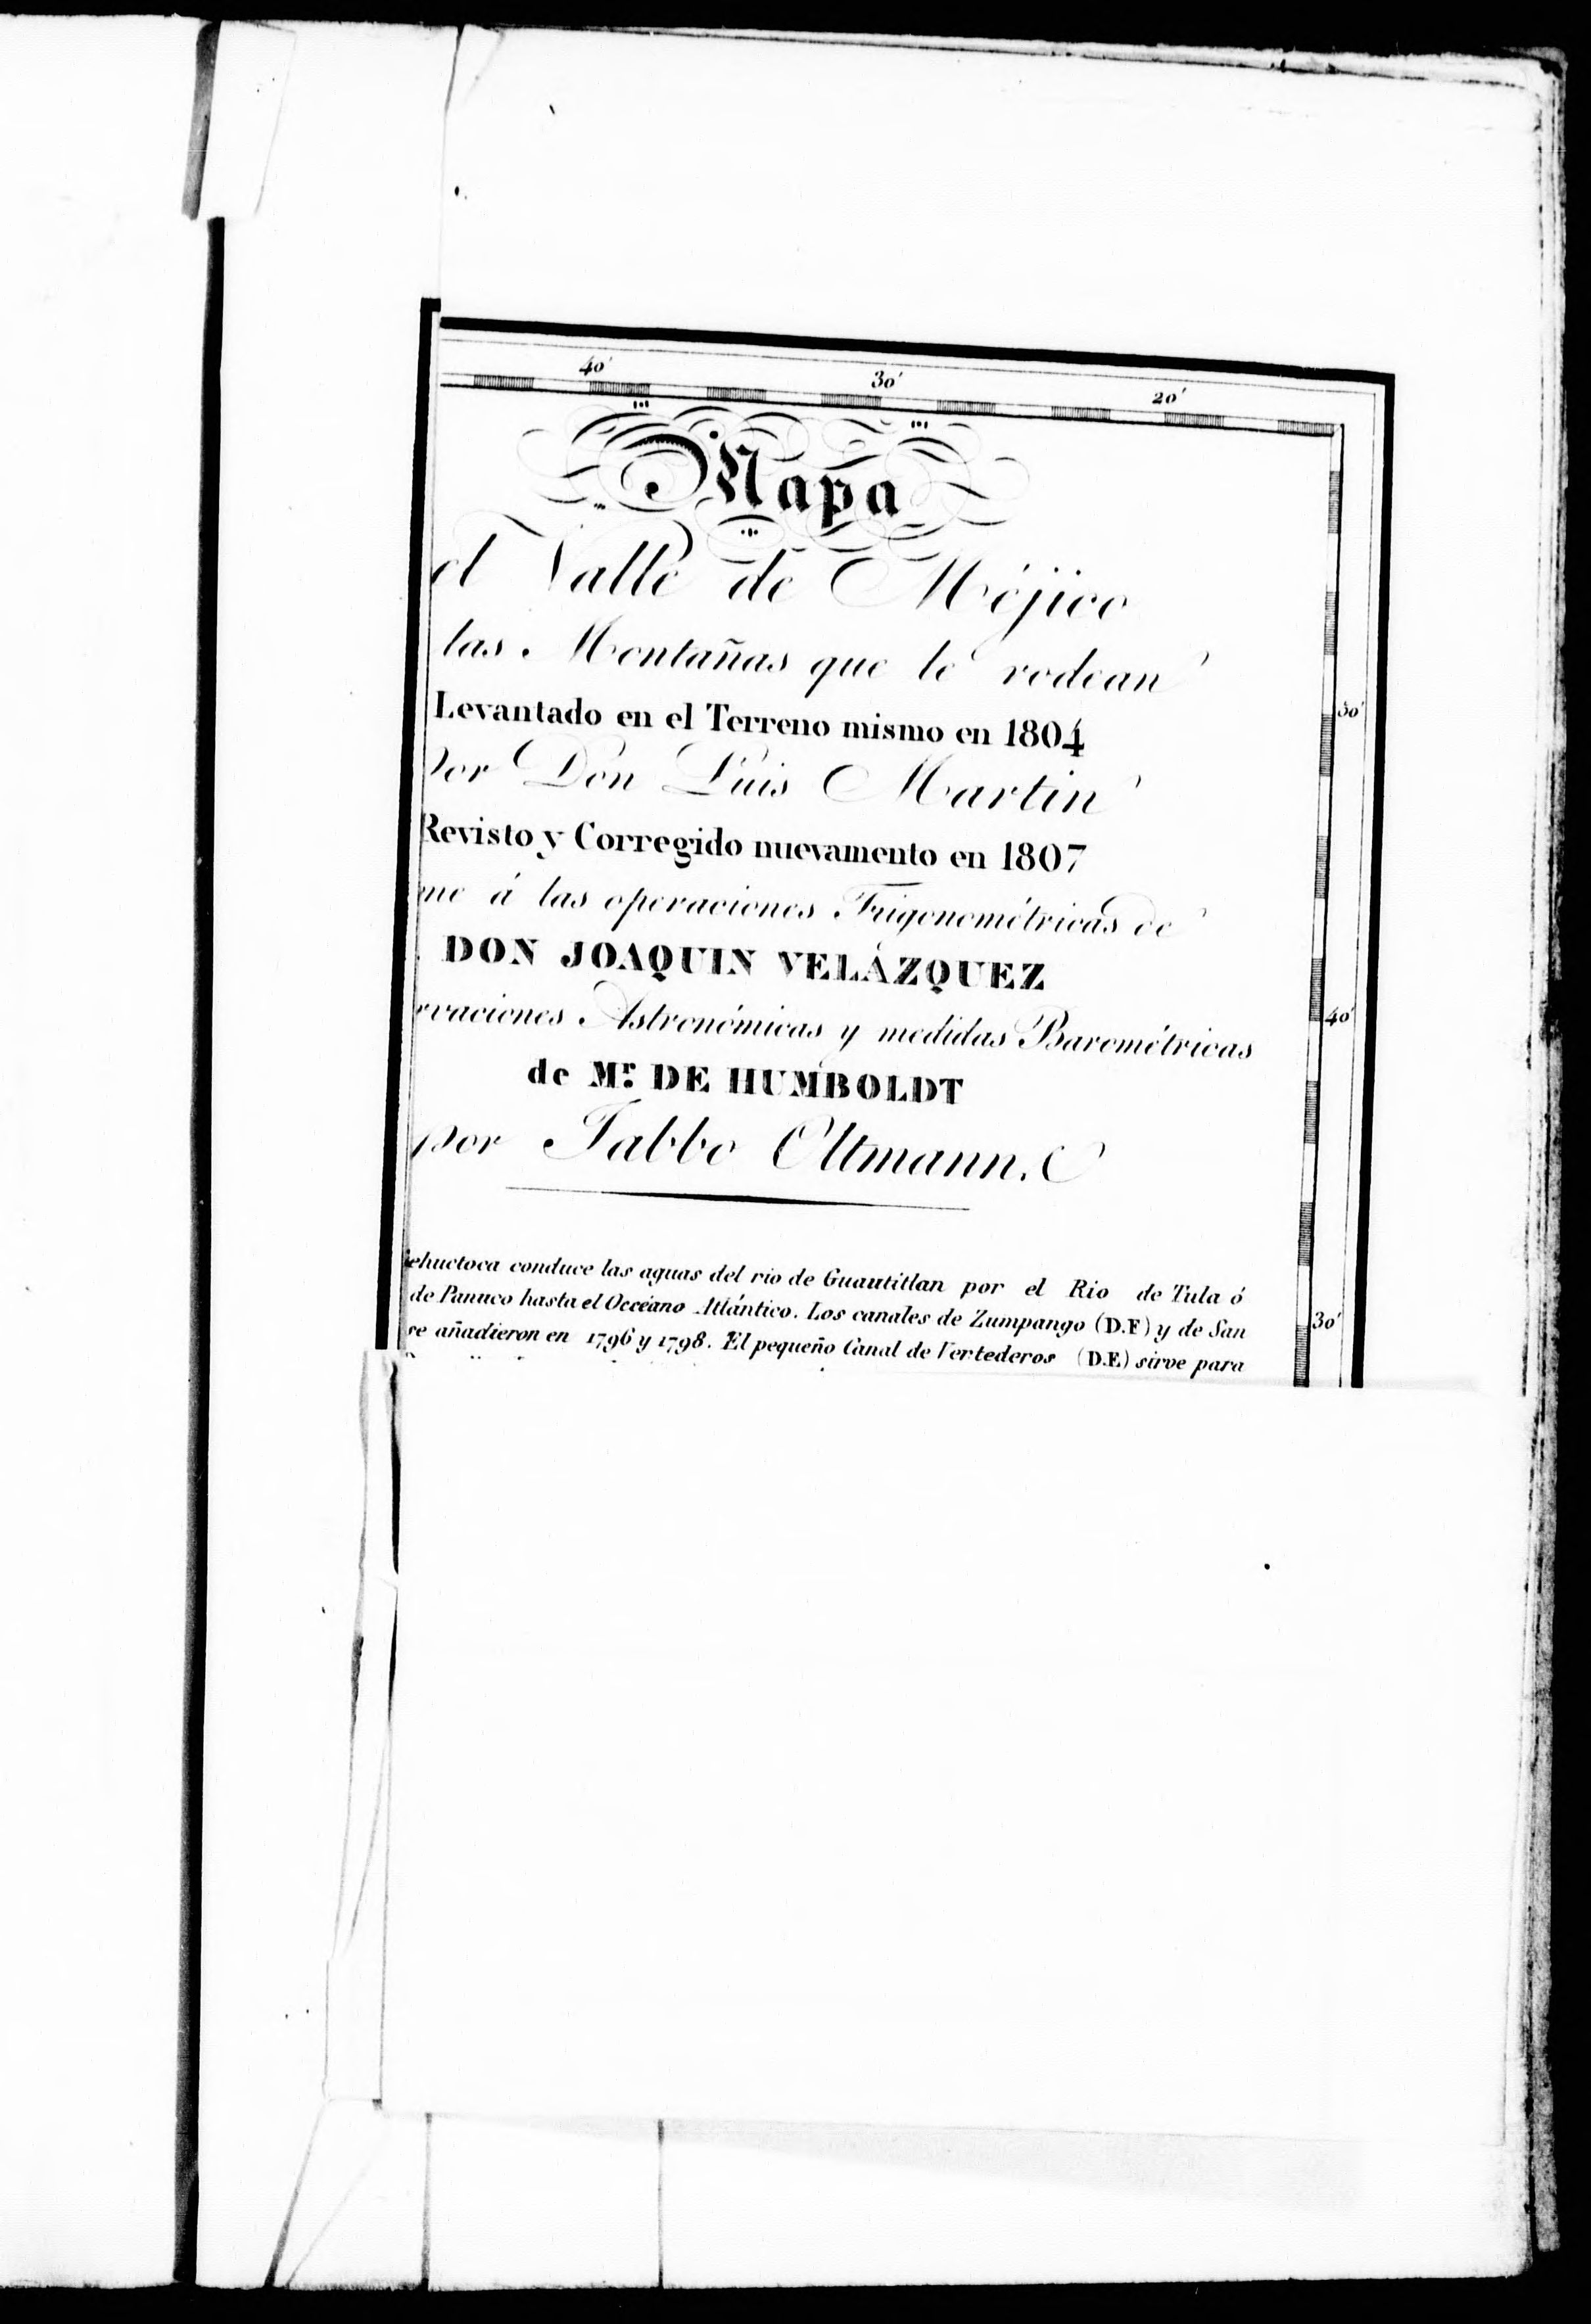 40' 30' 20'
Mapa
el Valle de Méjico
las Montañas que le rodean
Levantado en el Terreno mismo en 1804
Por Don Luis Martin
50'
Revisto y Corregido nuevamento en 1807
me á las operaciones Trigonométricas de
DON JOAQUIN VELÁZQUEZ
rvaciones Astronómicas y medidas Barométricas
40'
de Mr. DE HUMBOLDT
por Jabbo Oltmann.
ehuetoca conduce las aguas del rio de Guautitlan por el Rio de Tula ó
de Panuco hasta el Occéano Atlántico. Los canales de Zumpango (D.F) y de San
30'
se añadieron en 1796 y 1798. El pequeño Canal de Vertederos (D.E) sirve para